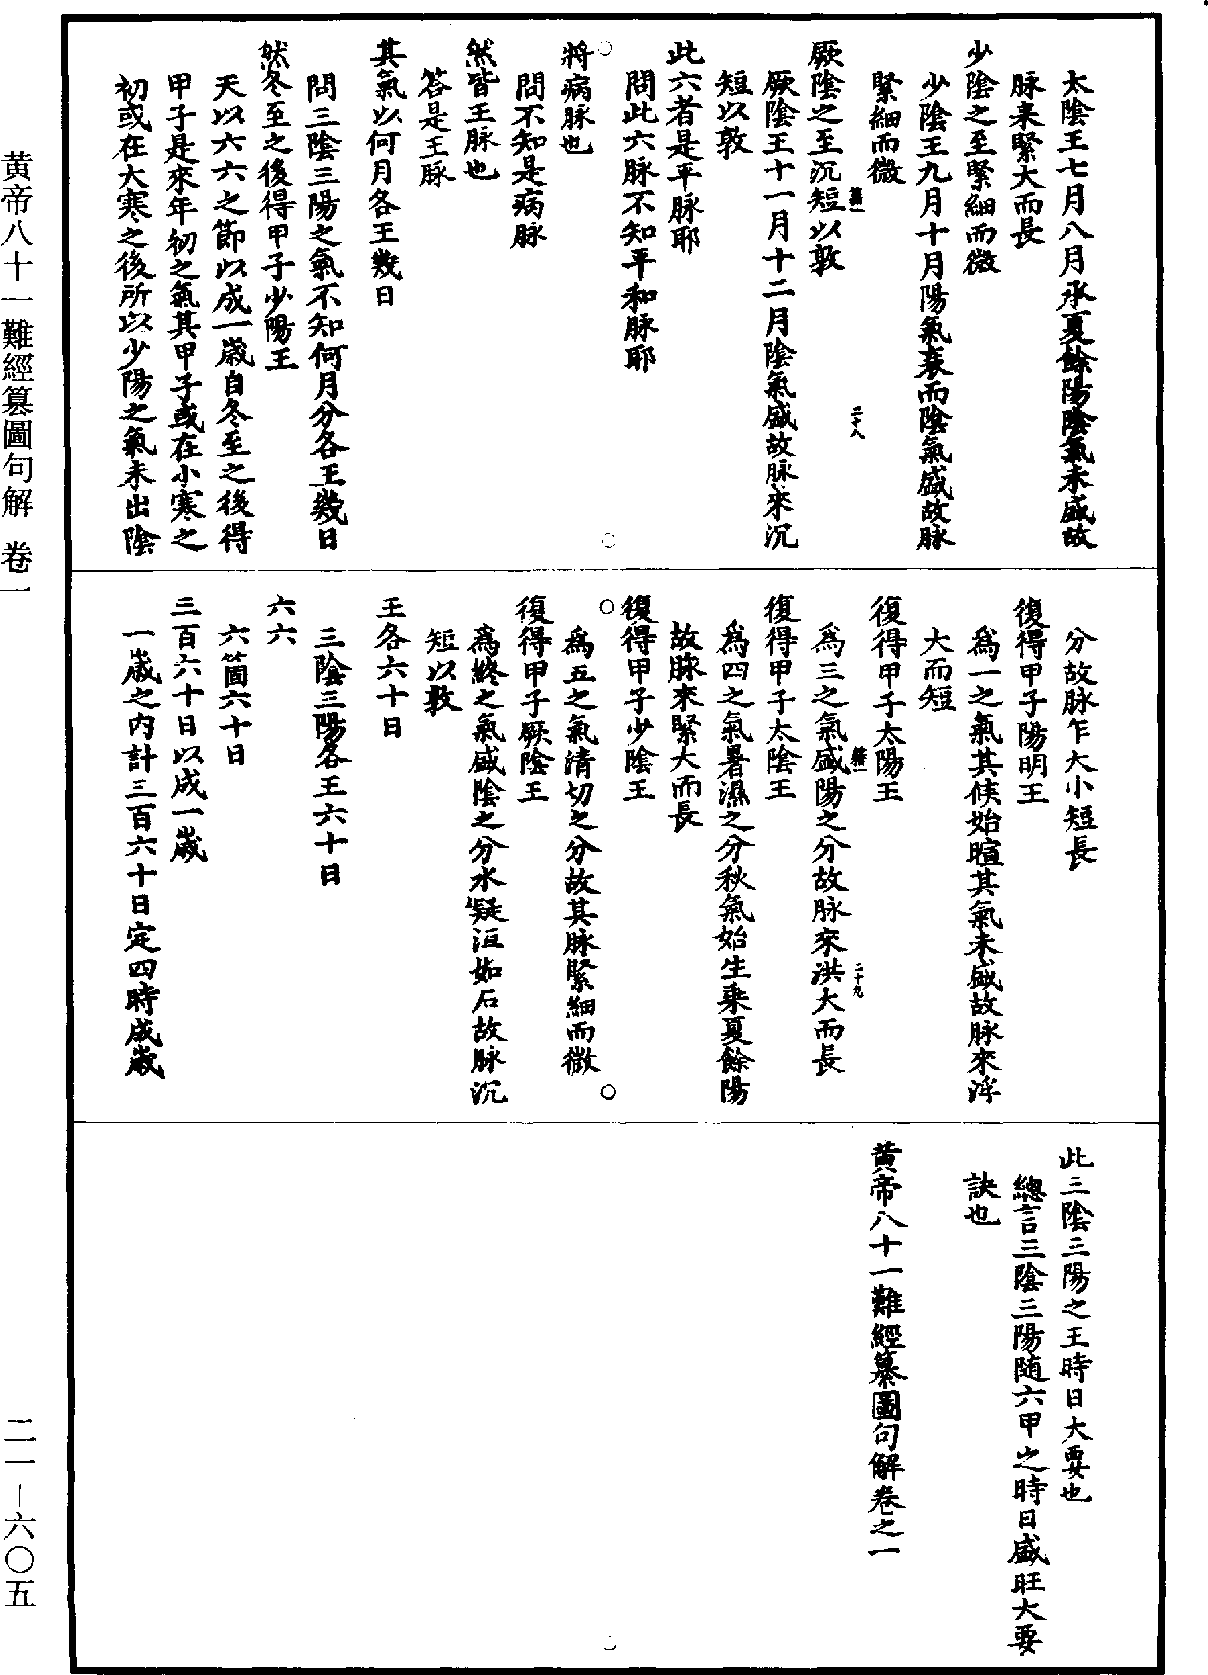 太陰王七月八月承夏餘陽陰氣未盛故
脉來緊大而長
少陰之至緊細而微
少陰王九月十月陽氣衰而陰氣盛故脉
緊細而微
厥陰之至沉短以敦
厥陰王十一月十二月陰氣盛故脉來沉
短以敦
此六者是平脉耶
問此六脉不知平和脉耶
將病脉也
問不知是病脉
然皆王脉也
答是王脉
其氣以何月各王幾日
問三陰三陽之氣不知何月分各王幾日
然冬至之後得甲子少陽王
天以六六之節以成一歲自冬至之後得
甲子是來年初之氣其甲子或在小寒之
初或在大寒之後所以少陽之氣未出陰
二十八
分故脉乍大小短長
復得甲子陽明王
為一之氣其候始暄其氣未盛故脉來浮
大而短
復得甲子太陽王
為三之氣盛陽之分故脉來洪大而長
復得甲子太陰王
為四之氣暑濕之分秋氣始生乘夏餘陽
故脉來緊大而長
復得甲子少陰王
為五之氣清切之分故其脉緊細而微
復得甲子厥陰王
為終之氣盛陰之分水凝沍如石故脉沉
短以敦
王各六十日
三陰三陽各王六十日
六六
六箇六十日
三百六十日以成一歲
一歲之內計三百六十日定四時成歲
二十九
此三陰三陽之王時日大要也
總言三陰三陽隨六甲之時日盛旺大要
訣也
黃帝八十一難經纂圖句解卷之一
黄帝八十一難經篡圖句解 卷一
二一—六〇五